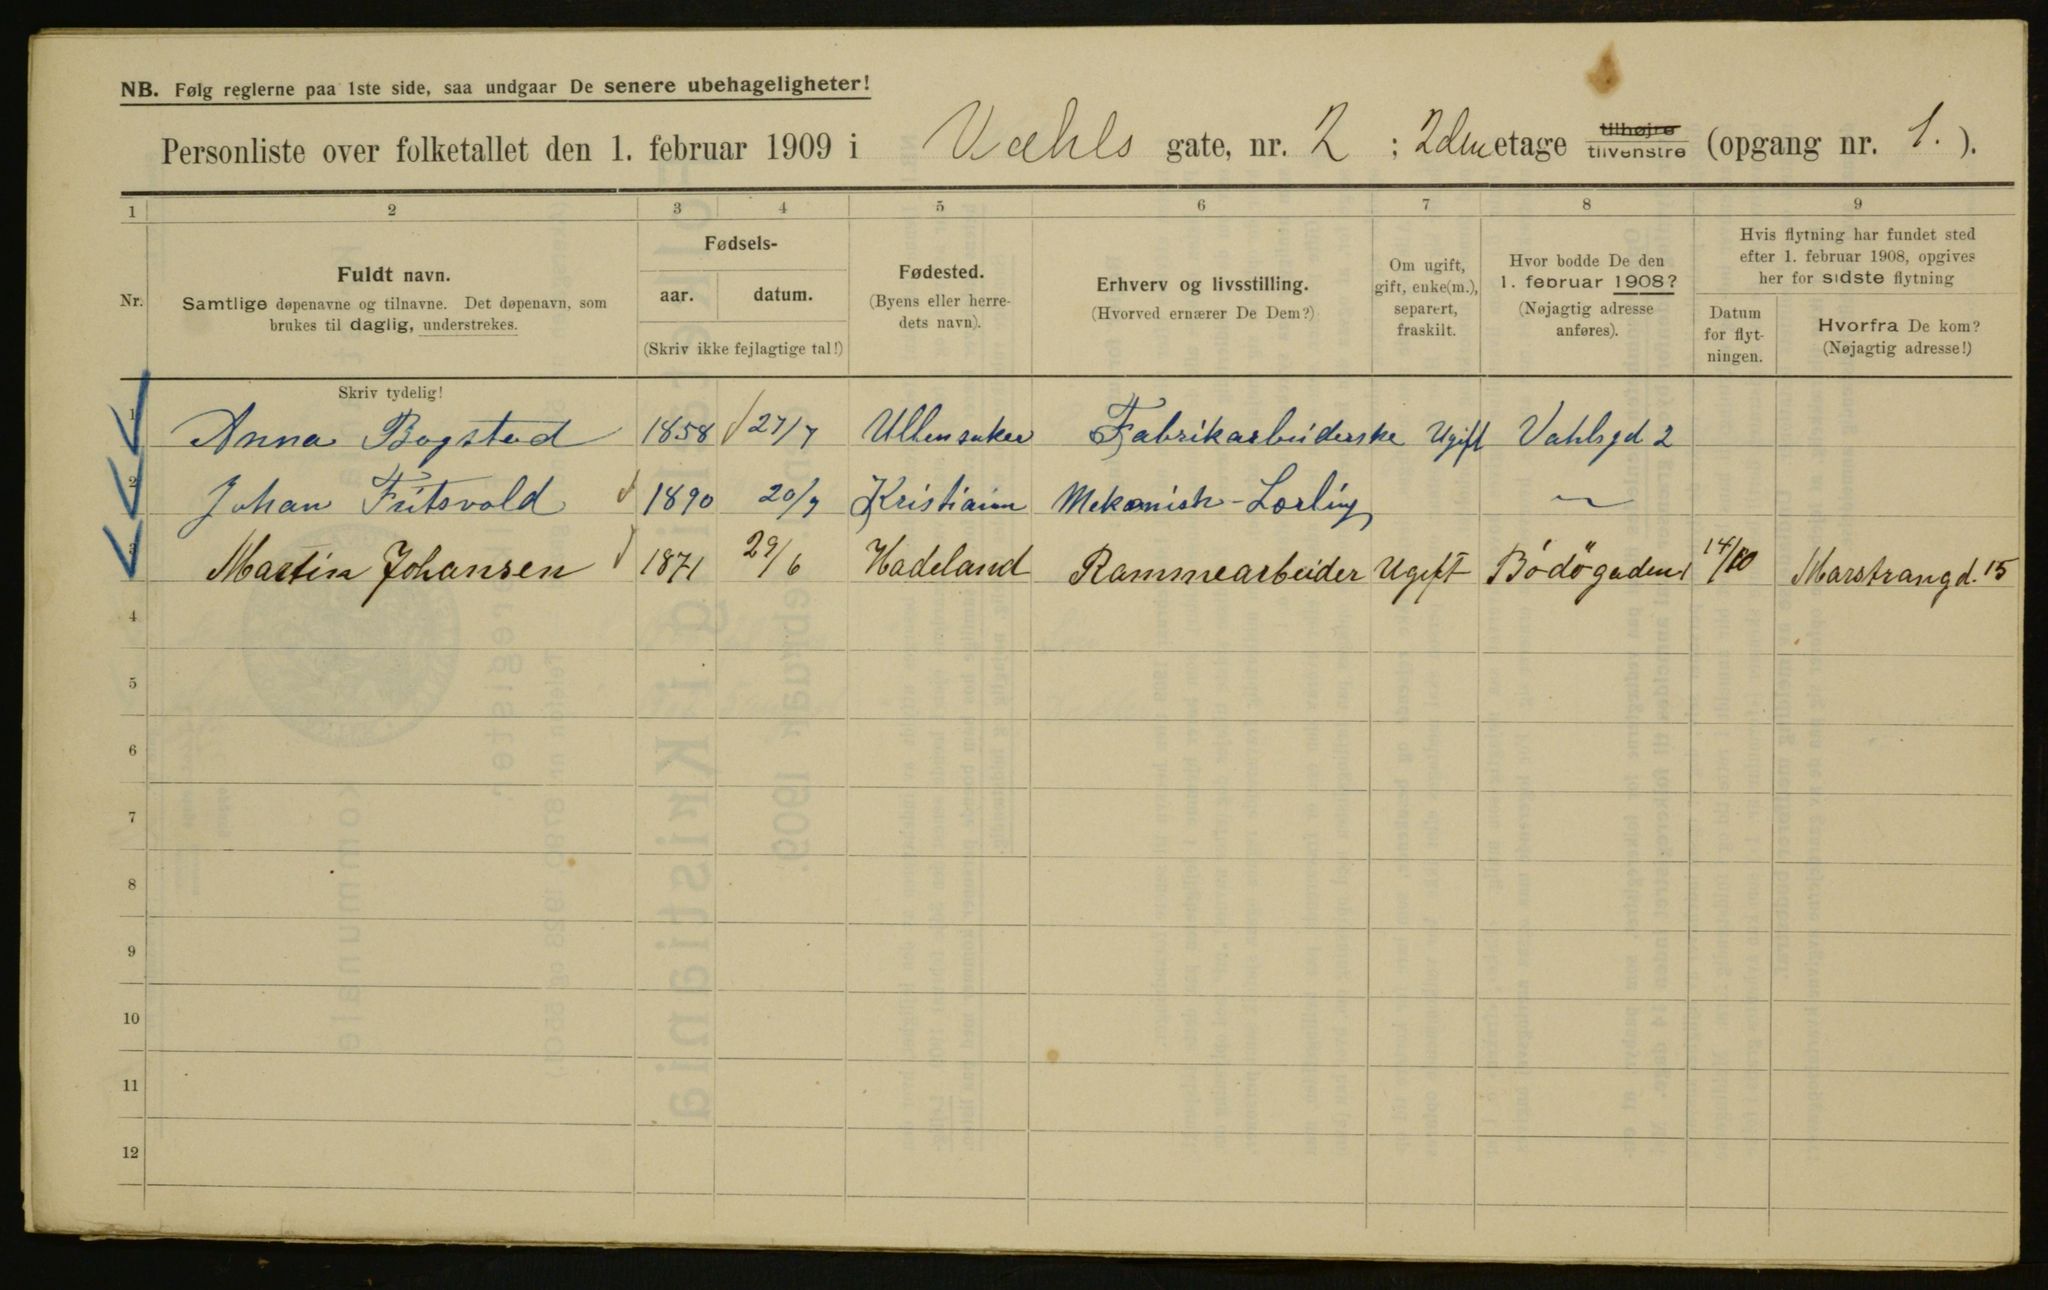 NB. Følg reglerne paa 1ste side, saa undgaar De senere ubehageligheter!
Personliste over folketallet den 1. februar 1909 i Vahls gate, nr. 2 ; 2den etage tilhøjre tilvenstre (opgang nr. 1. ).
1 2 3 4 5 6 7 8 9
Nr.
Fuldt navn.
Samtlige døpenavne og tilnavne. Det døpenavn, som
brukes til daglig, understrekes.
Fødsels-
aar. datum.
(Skriv ikke fejlagtige tal!)
Fødested.
(Byens eller herre-
dets navn).
Erhverv og livsstilling.
(Hvorved ernærer De Dem?)
Om ugift,
gift, enke(m.),
separert,
fraskilt.
Hvor bodde De den
1. februar 1908?
(Nøjagtig adresse
anføres).
Hvis flytning har fundet sted
efter 1. februar 1908, opgives
her for sidste flytning
Datum
for flyt-
ningen.
Hvorfra De kom?
(Nøjagtig adresse!)
Skriv tydelig!
1 Anna Bogstad 1858 27/7 Ullensaker Fabrikarbeiderske Ugift Vahlsgd 2
2 Johan Fritsvold 1890 20/9 Kristiania Mekanisk-Lærling
3 Martin Johansen 1871 29/6 Hadeland Rammearbeider Ugift Bödögaden 1 14/10 Marstrangd. 15
4
5
6
7
8
9
10
11
12